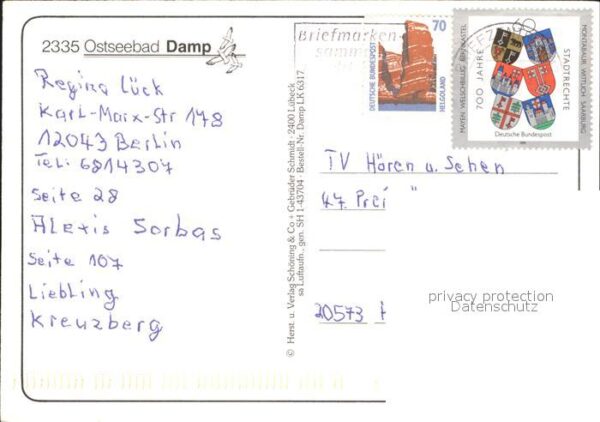 2335 Ostseebad Damp
Regina Lück
Karl-Marx-Str 178
12043 Berlin
Tel: 6814307
Seite 28
Alexis Sorbas
Seite 107
Liebling
Kreuzberg
© Herst. u. Verlag Schöning & Co + Gebrüder Schmidt - 2400 Lübeck
sa Luftaufn., gen. SH 1-43704 · Bestell-Nr. Damp LK 6317
Briefmarken
samm
DEUTSCHE BUNDESPOST
70
HELGOLAND
60
MAYEN WELSCHBILLIG BERNKASTEL
700 JAHRE
STADTRECHTE
MONTABAUR WITTLICH SAARBURG
Deutsche Bundespost
TV Hören u. Sehen
47. Prei
20573
privacy protection
Datenschutz